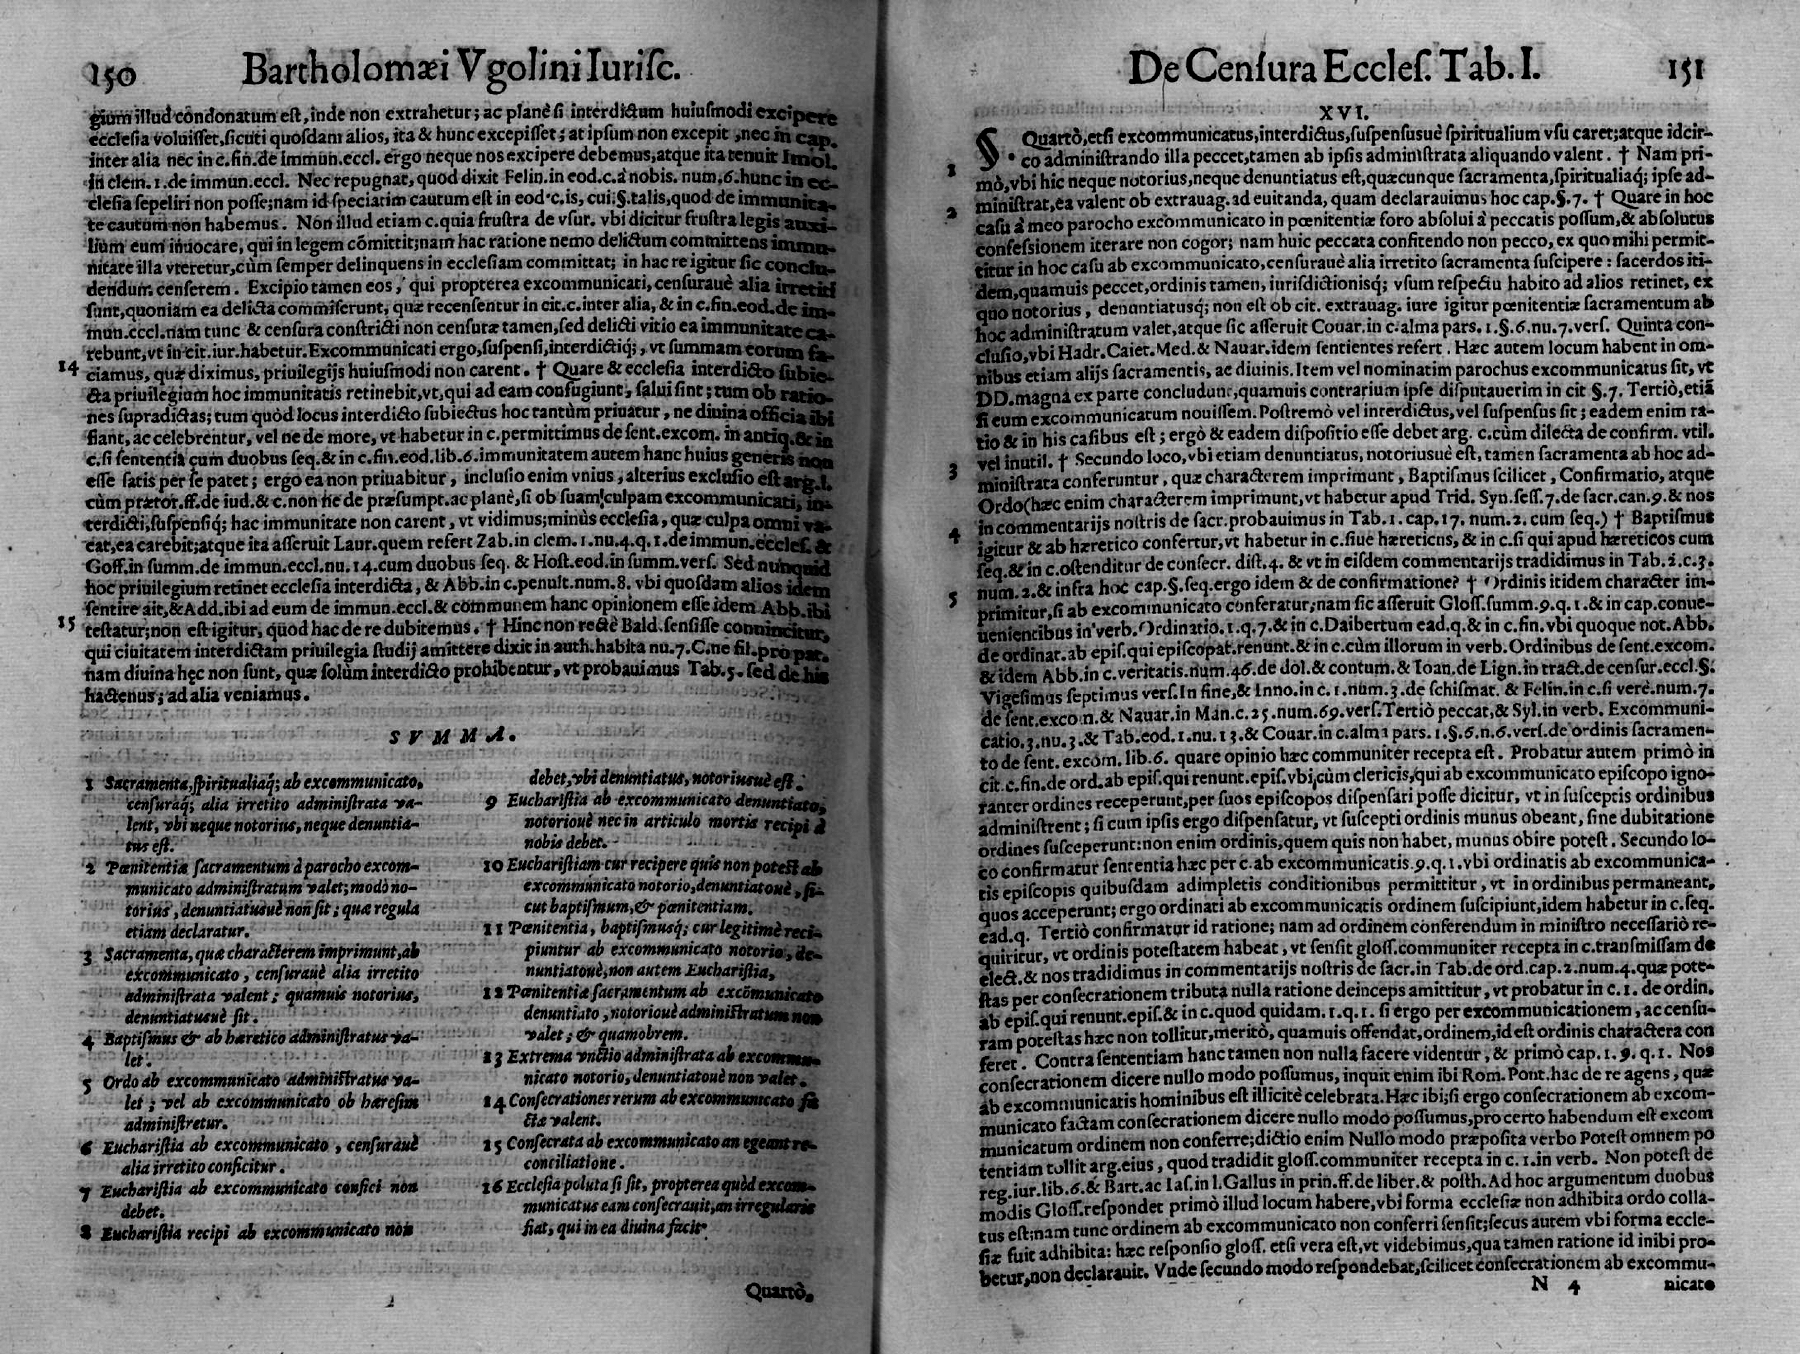 150 Bartholomæi Vgolini Iurisc.
gium illud condonatum est, inde non extrahetur; ac planè si interdictum huiusmodi excipere
ecclesia voluisset, sicuti quosdam alios, ita & hunc excepisset; at ipsum non excepit, nec in cap.
inter alia nec in c. fin. de immun. eccl. ergo neque nos excipere debemus, atque ita tenuit Imol.
in clem. 1. de immun. eccl. Nec repugnat, quod dixit Felin. in eod. c. à nobis. num. 6. hunc in ec-
clesia sepeliri non posse; nam id speciatim cautum est in eod. c. is, cui. §. talis, quod de immunita-
te cautum non habemus. Non illud etiam c. quia frustra de vsur. vbi dicitur frustra legis auxi-
lium eum inuocare, qui in legem cõmittit; nam hac ratione nemo delictum committens immu-
nitate illa vteretur, cùm semper delinquens in ecclesiam committat; in hac re igitur sic conclu-
dendum censerem. Excipio tamen eos, qui propterea excommunicati, censuraue alia irretiti
sunt, quoniam ea delicta commiserunt, quæ recensentur in cit. c. inter alia, & in c. fin. eod. de im-
mun. eccl. nam tunc & censura constricti non censuræ tamen, sed delicti vitio ea immunitate ca-
rebunt, vt in cit. iur. habetur. Excommunicati ergo, suspensi, interdictiq;, vt summam eorum fa-
14 ciamus, quæ diximus, priuilegijs huiusmodi non carent. † Quare & ecclesia interdicto subie-
cta priuilegium hoc immunitatis retinebit, vt, qui ad eam confugiunt, salui sint; tum ob ratio-
nes supradictas; tum quòd locus interdicto subiectus hoc tantùm priuatur, ne diuina officia ibi
fiant, ac celebrentur, vel ne de more, vt habetur in c. permittimus de sent. excom. in antiq. & in
c. si sententia cum duobus seq. & in c. fin. eod. lib. 6. immunitatem autem hanc huius generis non
esse satis per se patet; ergo ea non priuabitur, inclusio enim vnius, alterius exclusio est arg. l.
cùm prætor. ff. de iud. & c. non ne de præsumpt. ac planè, si ob suam culpam excommunicati, in-
terdicti, suspensiq; hac immunitate non carent, vt vidimus; minùs ecclesia, quæ culpa omni va-
cat, ea carebit; atque ita asseruit Laur. quem refert Zab. in clem. 1. nu. 4. q. 1. de immun. eccles. &
Goff. in summ. de immun. eccl. nu. 14. cum duobus seq. & Host. eod. in summ. vers. Sed nunquid
hoc priuilegium retinet ecclesia interdicta, & Abb. in c. penult. num. 8. vbi quosdam alios idem
sentire ait, & Add. ibi ad eum de immun. eccl. & communem hanc opinionem esse idem Abb. ibi
15 testatur; non est igitur, quòd hac de re dubitemus. † Hinc non rectè Bald. sensisse conuincitur,
qui ciuitatem interdictam priuilegia studij amittere dixit in auth. habita nu. 7. C. ne fil. pro pat.
nam diuina hęc non sunt, quæ solùm interdicto prohibentur, vt probauimus Tab. 5. sed de his
hactenus; ad alia veniamus.
SVMMA.
1 Sacramenta, spiritualiaq; ab excommunicato,
censuraq; alia irretito administrata va-
lent, vbi neque notorius, neque denuntia-
tus est.
2 Pœnitentiæ sacramentum à parocho excom-
municato administratum valet; modò no-
torius, denuntiatusuè non sit; quæ regula
etiam declaratur.
3 Sacramenta, quæ characterem imprimunt, ab
excommunicato, censurauè alia irretito
administrata valent; quamuis notorius,
denuntiatusuè sit.
4 Baptismus & ab hæretico administratus va-
let.
5 Ordo ab excommunicato administratus va-
let; vel ab excommunicato ob hæresim
administretur.
6 Eucharistia ab excommunicato, censurauè
alia irretito conficitur.
7 Eucharistia ab excommunicato confici non
debet.
8 Eucharistia recipi ab excommunicato non
debet, vbi denuntiatus, notoriusuè est.
9 Eucharistia ab excommunicato denuntiato,
notoriouè nec in articulo mortis recipi à
nobis debet.
10 Eucharistiam cur recipere quis non potest ab
excommunicato notorio, denuntiatouè, si-
cut baptismum, & pœnitentiam.
11 Pœnitentia, baptismusq; cur legitimè reci-
piuntur ab excommunicato notorio, de-
nuntiatouè, non autem Eucharistia,
12 Pœnitentiæ sacramentum ab excõmunicato
denuntiato, notoriouè administratum non
valet; & quamobrem.
13 Extrema vnctio administrata ab excommu-
nicato notorio, denuntiatouè non valet.
14 Consecrationes rerum ab excommunicato fa
ctæ valent.
15 Consecrata ab excommunicato an egeant re-
conciliatione.
16 Ecclesia poluta si sit, propterea quòd excom-
municatus eam consecrauit, an irregularis
fiat, qui in ea diuina facit.
Quartò,
De Censura Eccles. Tab. I. 151
XVI.
§. Quartò, etsi excommunicatus, interdictus, suspensusuè spiritualium vsu caret; atque idcir-
1 co administrando illa peccet, tamen ab ipsis administrata aliquando valent. † Nam pri-
mò, vbi hic neque notorius, neque denuntiatus est, quæcunque sacramenta, spiritualiaq; ipse ad-
2 ministrat, ea valent ob extrauag. ad euitanda, quam declarauimus hoc cap. §. 7. † Quare in hoc
casu à meo parocho excommunicato in pœnitentiæ foro absolui à peccatis possum, & absolutus
confessionem iterare non cogor; nam huic peccata confitendo non pecco, ex quo mihi permit-
titur in hoc casu ab excommunicato, censurauè alia irretito sacramenta suscipere: sacerdos iti-
dem, quamuis peccet, ordinis tamen, iurisdictionisq; vsum respectu habito ad alios retinet, ex
quo notorius, denuntiatusq; non est ob cit. extrauag. iure igitur pœnitentiæ sacramentum ab
hoc administratum valet, atque sic asseruit Couar. in c. alma pars. 1. §. 6. nu. 7. vers. Quinta con-
clusio, vbi Hadr. Caiet. Med. & Nauar. idem sentientes refert. Hæc autem locum habent in om-
nibus etiam alijs sacramentis, ac diuinis. Item vel nominatim parochus excommunicatus sit, vt
DD. magna ex parte concludunt, quamuis contrarium ipse disputauerim in cit §. 7. Tertiò, etiã
si eum excommunicatum nouissem. Postremò vel interdictus, vel suspensus sit; eadem enim ra-
tio & in his casibus est; ergò & eadem dispositio esse debet arg. c. cùm dilecta de confirm. vtil.
3 vel inutil. † Secundo loco, vbi etiam denuntiatus, notoriusuè est, tamen sacramenta ab hoc ad-
ministrata conferuntur, quæ characterem imprimunt, Baptismus scilicet, Confirmatio, atque
Ordo (hæc enim characterem imprimunt, vt habetur apud Trid. Syn. sess. 7. de sacr. can. 9. & nos
4 in commentarijs nostris de sacr. probauimus in Tab. 1. cap. 17. num. 2. cum seq.) † Baptismus
igitur & ab hæretico confertur, vt habetur in c. siue hæreticus, & in c. si qui apud hæreticos cum
seq. & in c. ostenditur de consecr. dist. 4. & vt in eisdem commentarijs tradidimus in Tab. 2. c. 3.
5 num. 2. & infra hoc cap. §. seq. ergo idem & de confirmatione? † Ordinis itidem character im-
primitur, si ab excommunicato conferatur; nam sic asseruit Gloss. summ. 9. q. 1. & in cap. conue-
uenientibus in verb. Ordinatio. 1. q. 7. & in c. Daibertum ead. q. & in c. fin. vbi quoque not. Abb.
de ordinat. ab epis. qui episcopat. renunt. & in c. cùm illorum in verb. Ordinibus de sent. excom.
& idem Abb. in c. veritatis. num. 46. de dol. & contum. & Ioan. de Lign. in tract. de censur. eccl. §.
Vigesimus septimus vers. In fine, & Inno. in c. 1. num. 3. de schismat. & Felin. in c. si verè. num. 7.
de sent. excom. & Nauar. in Man. c. 25. num. 69. vers. Tertiò peccat, & Syl. in verb. Excommuni-
catio. 3. nu. 3. & Tab. eod. 1. nu. 13. & Couar. in c. alma pars. 1. §. 6. n. 6. vers. de ordinis sacramen-
to de sent. excom. lib. 6. quare opinio hæc communiter recepta est. Probatur autem primò in
cit. c. fin. de ord. ab epis. qui renunt. epis. vbi, cùm clericis, qui ab excommunicato episcopo igno-
ranter ordines receperunt, per suos episcopos dispensari posse dicitur, vt in susceptis ordinibus
administrent; si cum ipsis ergo dispensatur, vt suscepti ordinis munus obeant, sine dubitatione
ordines susceperunt: non enim ordinis, quem quis non habet, munus obire potest. Secundo lo-
co confirmatur sententia hæc per c. ab excommunicatis. 9. q. 1. vbi ordinatis ab excommunica-
tis episcopis quibusdam adimpletis conditionibus permittitur, vt in ordinibus permaneant,
quos acceperunt; ergo ordinati ab excommunicatis ordinem suscipiunt, idem habetur in c. seq.
ead. q. Tertiò confirmatur id ratione; nam ad ordinem conferendum in ministro necessariò re-
quiritur, vt ordinis potestatem habeat, vt sensit gloss. communiter recepta in c. transmissam de
elect. & nos tradidimus in commentarijs nostris de sacr. in Tab. de ord. cap. 2. num. 4. quæ pote-
stas per consecrationem tributa nulla ratione deinceps amittitur, vt probatur in c. 1. de ordin.
ab epis. qui renunt. epis. & in c. quod quidam. 1. q. 1. si ergo per excommunicationem, ac censu-
ram potestas hæc non tollitur, meritò, quamuis offendat, ordinem, id est ordinis charactera con
feret. Contra sententiam hanc tamen non nulla facere videntur, & primò cap. 1. 9. q. 1. Nos
consecrationem dicere nullo modo possumus, inquit enim ibi Rom. Pont. hac de re agens, quæ
ab excommunicatis hominibus est illicitè celebrata. Hæc ibi; si ergo consecrationem ab excom-
municato factam consecrationem dicere nullo modo possumus, pro certo habendum est excom
municatum ordinem non conferre; dictio enim Nullo modo præposita verbo Potest omnem po
tentiam tollit arg. eius, quod tradidit gloss. communiter recepta in c. 1. in verb. Non potest de
reg. iur. lib. 6. & Bart. ac Ias. in l. Gallus in prin. ff. de liber. & posth. Ad hoc argumentum duobus
modis Gloss. respondet primò illud locum habere, vbi forma ecclesiæ non adhibita ordo colla-
tus est; nam tunc ordinem ab excommunicato non conferri sensit; secus autem vbi forma eccle-
siæ fuit adhibita: hæc responsio gloss. etsi vera est, vt videbimus, qua tamen ratione id inibi pro-
betur, non declarauit. Vnde secundo modo respondebat, scilicet consecrationem ab excommu-
N 4 nicato